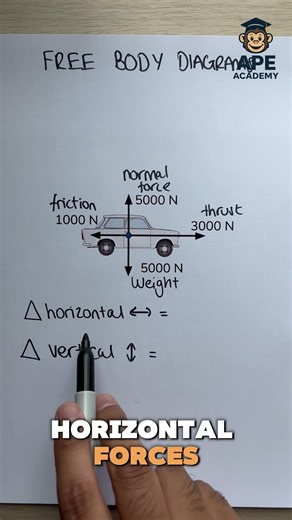 APE
ACADEMY
FREE BODY DIAGRAMS
normal
force
5000 N
friction
1000 N
thrust
3000 N
5000 N
Weight
△ horizontal ↔ =
△ vertical ↕ =
HORIZONTAL
FORCES